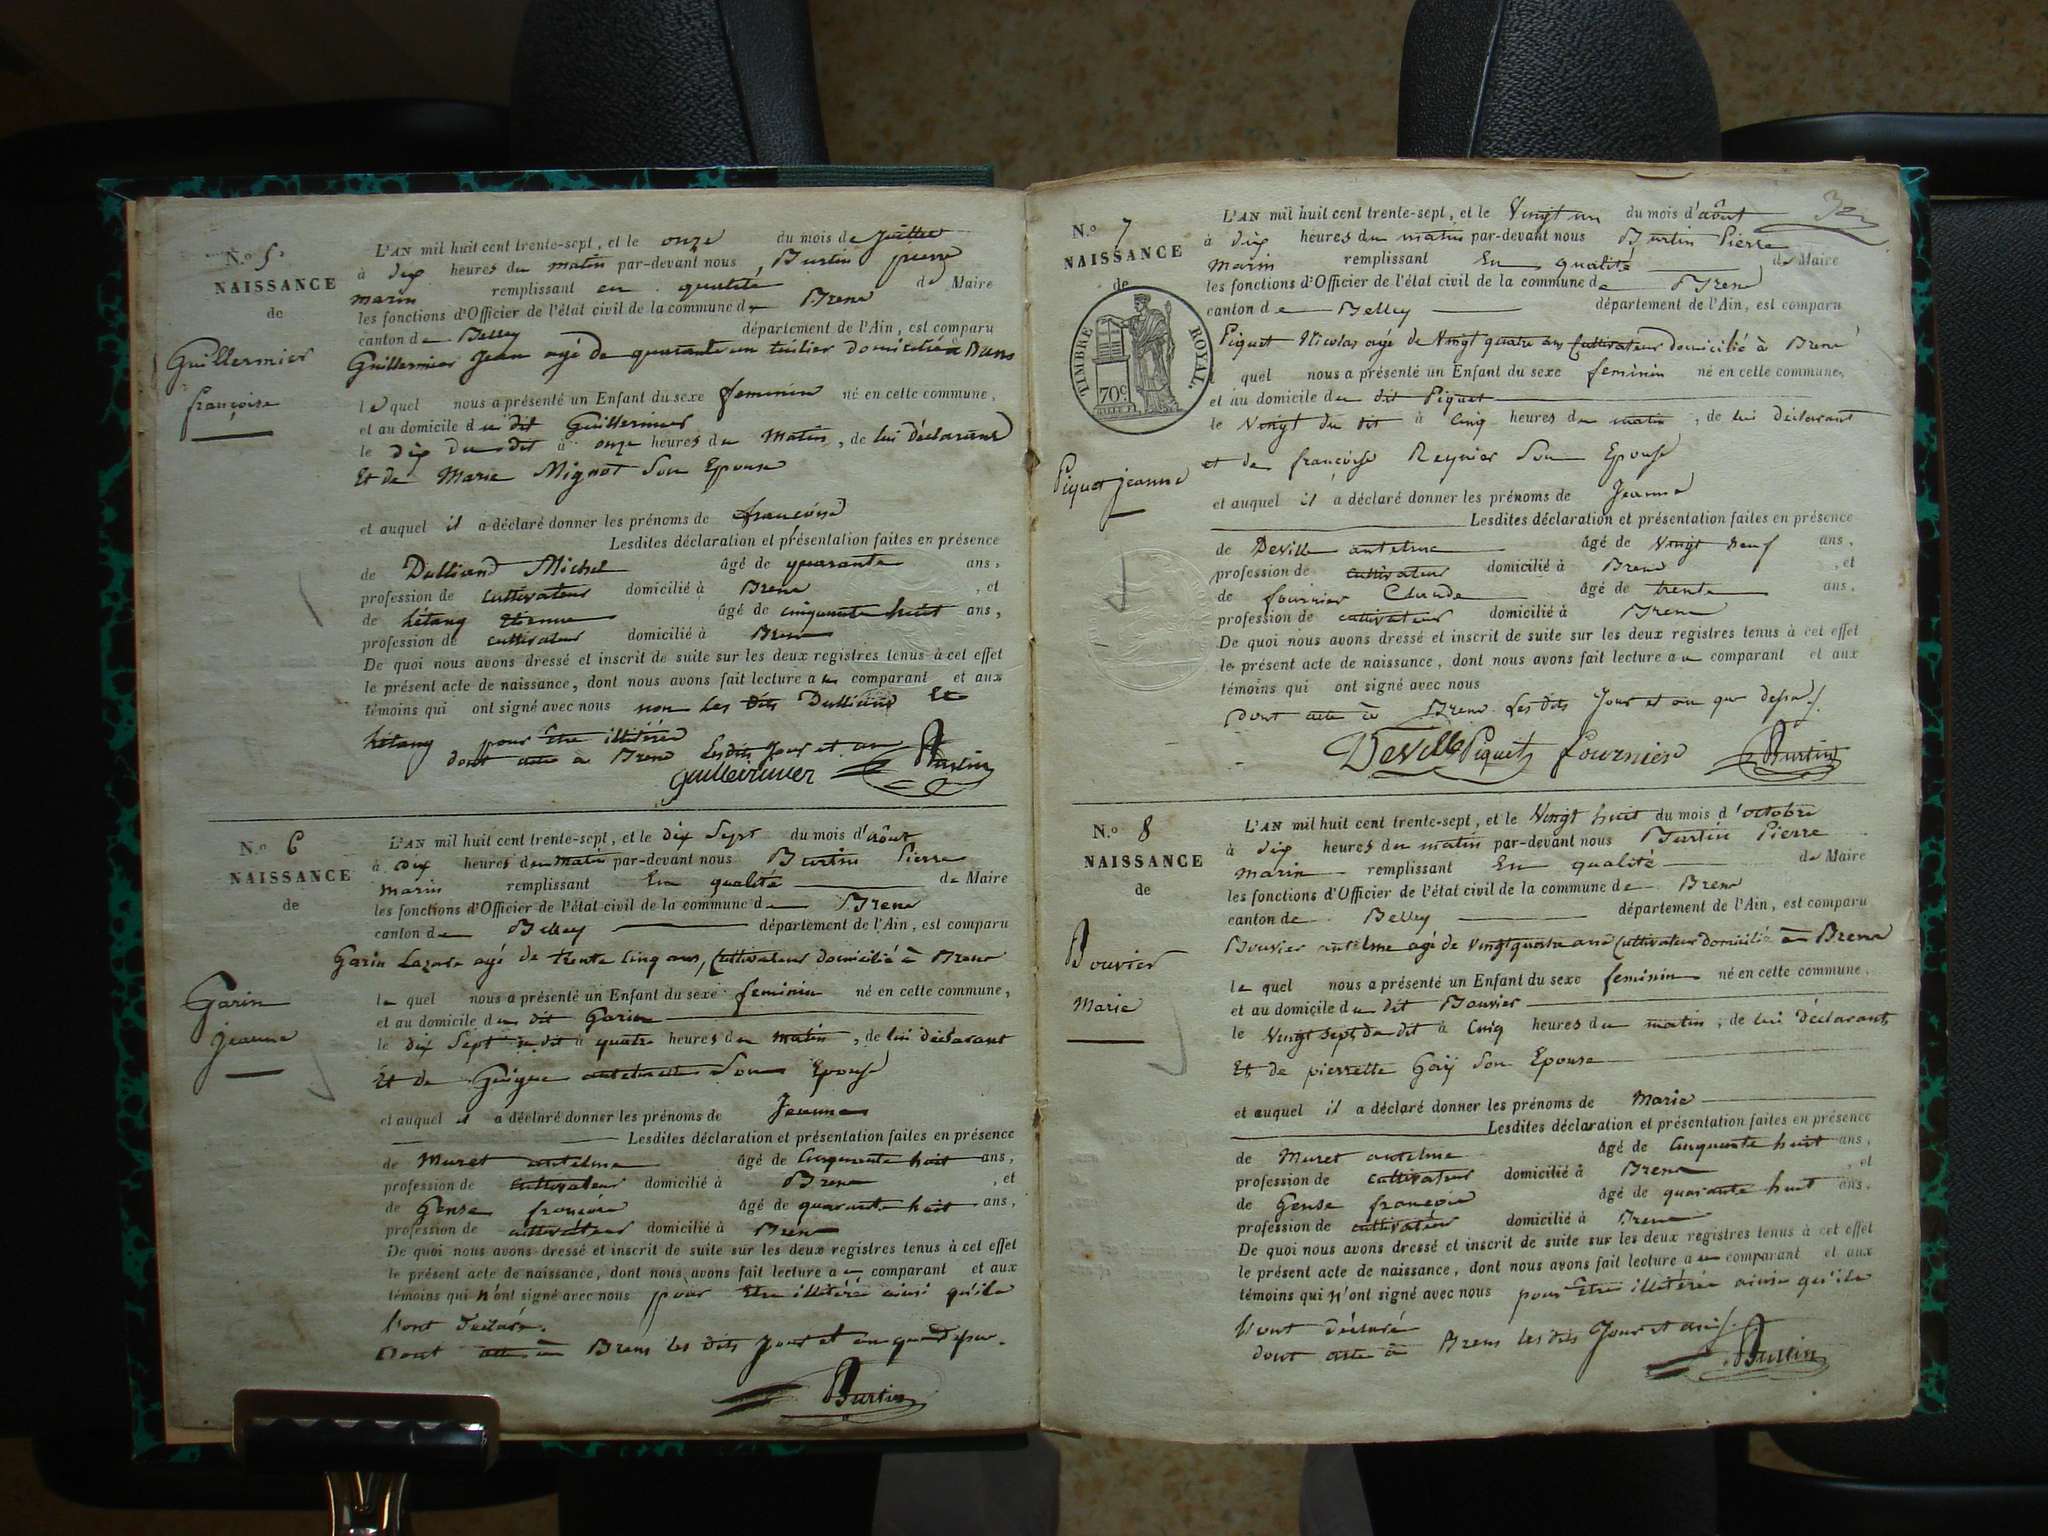 N.º 5.
NAISSANCE
de
Guillermier
françoise
L'AN mil huit cent trente-sept, et le onze du mois de Juillet
à dix heures du matin par-devant nous, Burtin pierre
marin remplissant en qualité de Maire
les fonctions d'Officier de l'état civil de la commune de Brens
canton de Belley département de l'Ain, est comparu
Guillermier Jean agé de quarante un tuilier domicilié à Brens
le quel nous a présenté un Enfant du sexe feminin né en cette commune,
et au domicile du dit Guillermier
le dix du dit à onze heures du Matin, de lui Déclarant
Et de Marie Mignot Son Epouse
et auquel il a déclaré donner les prénoms de françoise
Lesdites déclaration et présentation faites en présence
de Dulliand Michel âgé de quarante ans,
profession de cultivateur domicilié à Brens, et
de hétang Etienne âgé de cinquante huit ans,
profession de cultivateur domicilié à Brens
De quoi nous avons dressé et inscrit de suite sur les deux registres tenus à cet effet
le présent acte de naissance, dont nous avons fait lecture au comparant et aux
témoins qui ont signé avec nous non les dits Dulliand Et
hétang pour Etre illitéré
dont acte à Brens Lesdits Jour et an
Guillermier Burtin
N.º 6
NAISSANCE
de
Garin
Jeanne
L'AN mil huit cent trente-sept, et le dix Sept du mois d'aôut
à dix heures du matin par-devant nous Burtin Pierre
marin remplissant En qualité de Maire
les fonctions d'Officier de l'état civil de la commune de Brens
canton de Belley département de l'Ain, est comparu
Garin Lazare agé de trente Cinq ans, Cultivateur domicilié à Brens
le quel nous a présenté un Enfant du sexe feminin né en cette commune,
et au domicile du dit Garin
le dix Sept du dit à quatre heures du matin, de lui déclarant
Et de Son Epouse
et auquel il a déclaré donner les prénoms de Jeanne
Lesdites déclaration et présentation faites en présence
de Muret antelme âgé de Cinquante huit ans,
profession de cultivateur domicilié à Brens, et
de Gense françois âgé de quarante huit ans,
profession de cultivateur domicilié à Brens
De quoi nous avons dressé et inscrit de suite sur les deux registres tenus à cet effet
le présent acte de naissance, dont nous avons fait lecture au comparant et aux
témoins qui n'ont signé avec nous pour Etre illitéré ainsi qu'ils
l'ont déclaré.
Dont acte à Brens les dits Jour et an que depar.
Burtin
N.º 7
NAISSANCE
de
TIMBRE ROYAL.
70c
Piquet jeanne
L'AN mil huit cent trente-sept, et le Vingt un du mois d'aôut
à dix heures du matin par-devant nous Burtin Pierre
marin remplissant En qualité de Maire
les fonctions d'Officier de l'état civil de la commune de Brens
canton de Belley département de l'Ain, est comparu
Piquet Nicolas agé de Vingt quatre ans Cultivateur domicilié à Brens
quel nous a présenté un Enfant du sexe feminin né en cette commune,
et au domicile du dit Piquet
le Vingt du dit à Cinq heures du matin, de lui déclarant
et de françoise Reynier Son Epouse
et auquel il a déclaré donner les prénoms de Jeanne
Lesdites déclaration et présentation faites en présence
de Deville antelme âgé de Vingt neuf ans,
profession de cultivateur domicilié à Brens, et
de fournier Claude âgé de trente ans,
profession de cultivateur domicilié à Brens
De quoi nous avons dressé et inscrit de suite sur les deux registres tenus à cet effet
le présent acte de naissance, dont nous avons fait lecture au comparant et aux
témoins qui ont signé avec nous
Dont acte à Brens Les dits Jour et an que depar./.
Deville Piquet fournier Burtin
N.º 8
NAISSANCE
de
Bouvier
Marie
L'AN mil huit cent trente-sept, et le Vingt huit du mois d'octobre
à dix heures du matin par-devant nous Burtin Pierre
marin remplissant En qualité de Maire
les fonctions d'Officier de l'état civil de la commune de Brens
canton de Belley département de l'Ain, est comparu
Bouvier antelme agé de Vingt quatre ans Cultivateur domicilié à Brens
le quel nous a présenté un Enfant du sexe feminin né en cette commune,
et au domicile du dit Bouvier
le Vingt sept du dit à Cinq heures du matin, de lui déclarant
Et de pierrette Gaÿ Son Epouse
et auquel il a déclaré donner les prénoms de Marie
Lesdites déclaration et présentation faites en présence
de Muret antelme âgé de Cinquante huit ans,
profession de cultivateur domicilié à Brens, et
de Gense françois âgé de quarante huit ans,
profession de cultivateur domicilié à Brens
De quoi nous avons dressé et inscrit de suite sur les deux registres tenus à cet effet
le présent acte de naissance, dont nous avons fait lecture au comparant et aux
témoins qui n'ont signé avec nous pour Etre illitéré ainsi qu'ils
l'ont déclaré
dont acte à Brens les dits Jour et an./.
Burtin